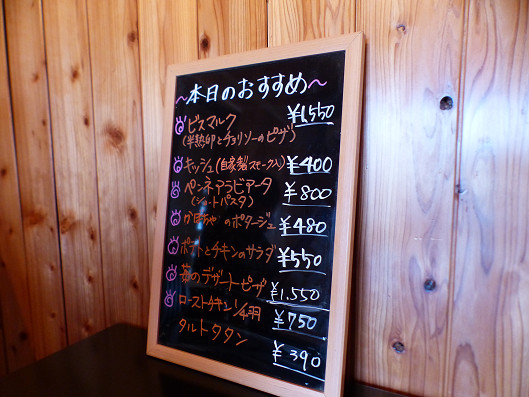 ~本日のおすすめ~
ビスマルク ¥1,550
(半熟卵とチョリソーのピザ)
キッシュ(自家製スモーク入) ¥400
ペンネアラビアータ ¥800
(ショートパスタ)
かぼちゃのポタージュ ¥480
ポテトとチキンのサラダ ¥550
苺のデザートピザ ¥1,550
ローストチキン1/4羽 ¥750
タルトタタン ¥390